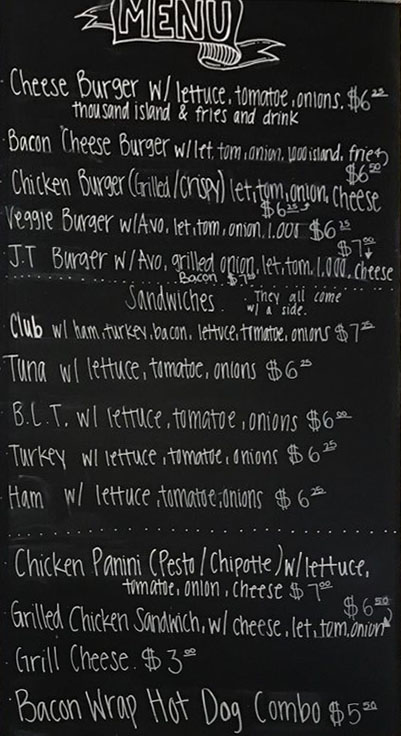 MENU
Cheese Burger w/ lettuce, tomatoe, onions. $6²⁵
thousand island & fries and drink
Bacon Cheese Burger w/ let, tom, onion, 1000 island, fries
$6⁵⁰
Chicken Burger (Grilled/Crispy) let, tom, onion, cheese
$6²⁵
Veggie Burger w/ Avo, let, tom, onion, 1.000 $6²⁵
$7⁰⁰
J.T Burger w/ Avo, grilled onion, let, tom, 1.000, cheese
Bacon
Sandwiches · They all come
w/ a side.
Club w/ ham, turkey, bacon, lettuce, tomatoe, onions
Tuna w/ lettuce, tomatoe, onions $6²⁵
B.L.T. w/ lettuce, tomatoe, onions $6⁰⁰
Turkey w/ lettuce, tomatoe, onions $6²⁵
Ham w/ lettuce, tomatoe, onions $6²⁵
· Chicken Panini (Pesto/Chipotle) w/ lettuce,
tomatoe, onion, cheese $7⁰⁰
$6⁵⁰
· Grilled Chicken Sandwich, w/ cheese, let, tom, onion
· Grill Cheese. $3⁰⁰
· Bacon Wrap Hot Dog Combo $5⁵⁰